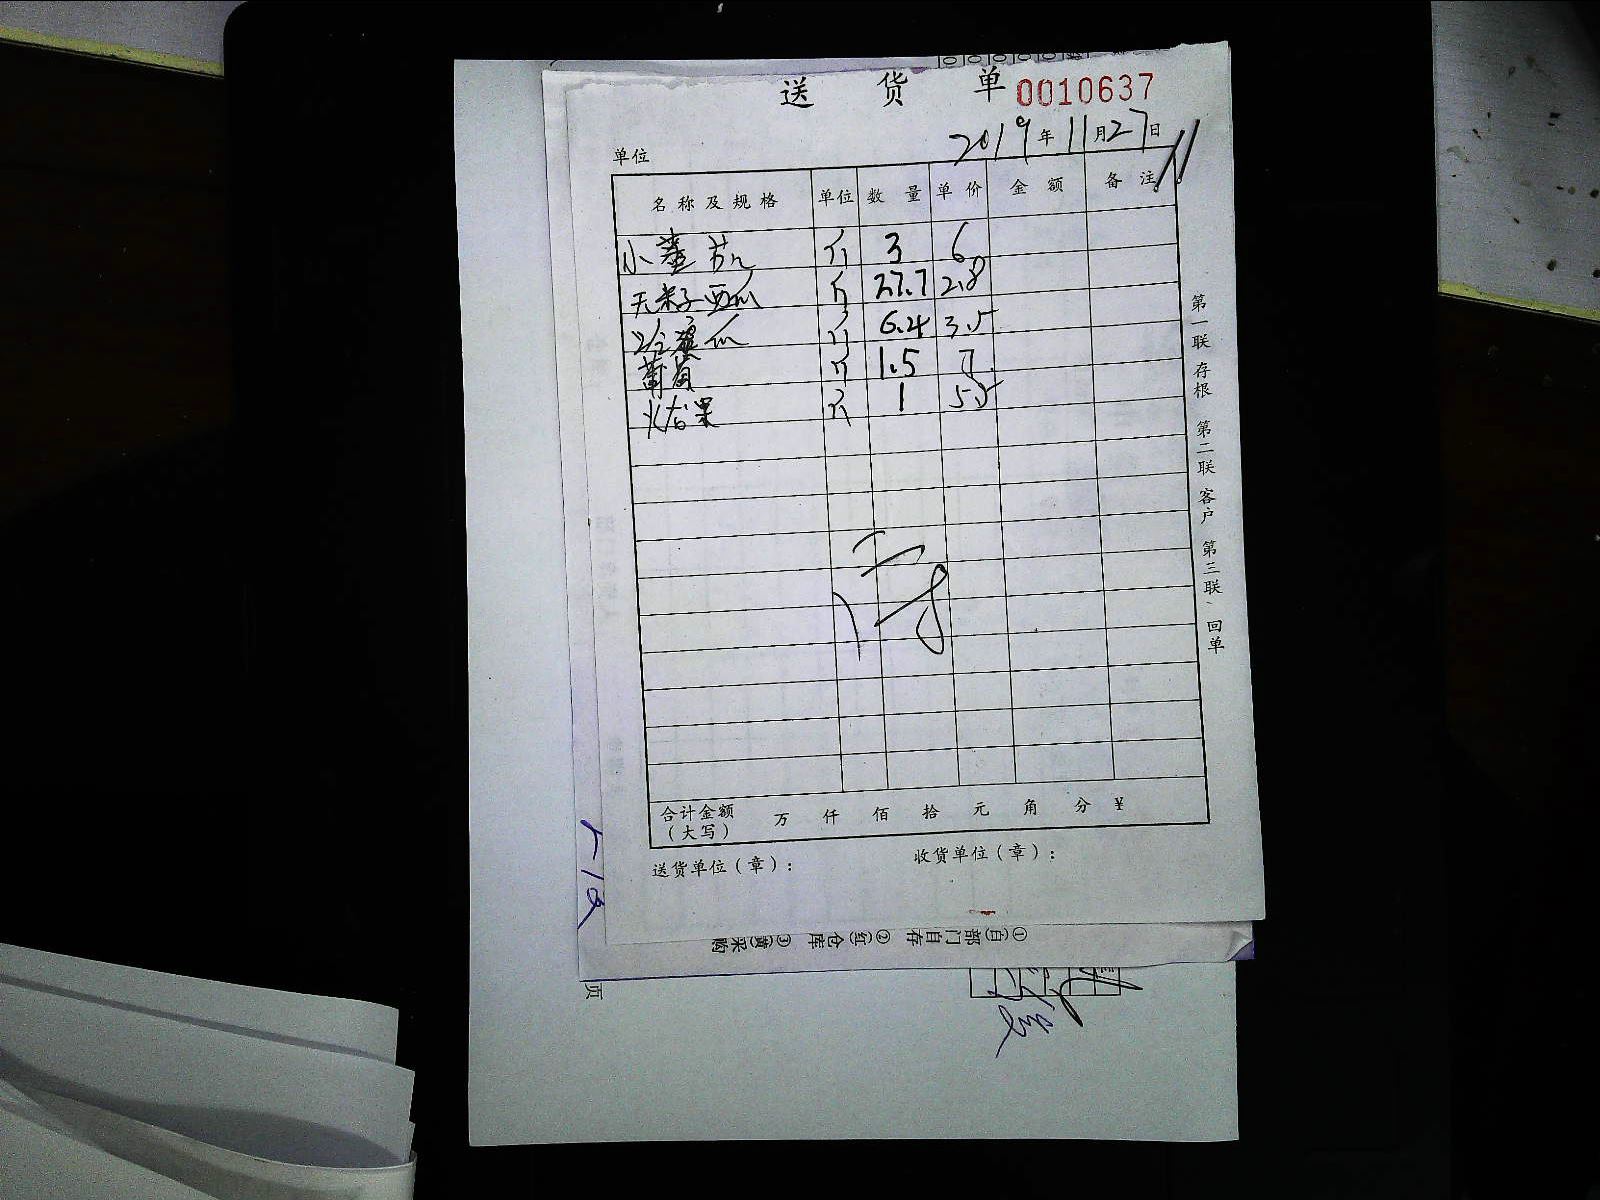 送 货 单 0010637
2019年11月27日
单位
名称及规格 单位 数量 单价 金额 备注
小蕃茄 斤 3 6
无籽西瓜 斤 27.7 2.8
哈蜜瓜 斤 6.4 3.5
葡萄 斤 1.5 7
火龙果 斤 1 5.5
合计金额(大写) 万 仟 佰 拾 元 角 分 ¥
送货单位(章): 收货单位(章):
第一联 存根 第二联 客户 第三联、回单
①(白)部门自存 ②(红)仓库 ③(黄)采购
页